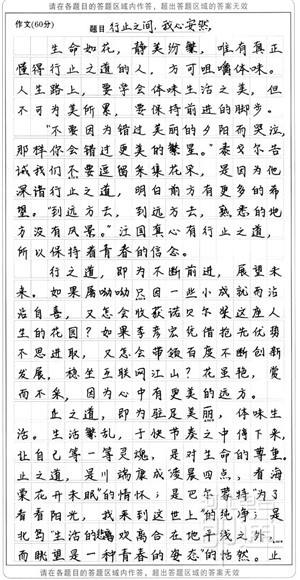 请在各题目的答题区域内作答，超出答题区域的答案无效
作文(60分)
题目 行止之间，我心安然
生命如花，静美纷繁，唯有真正
懂得行止之道的人，方可咀嚼体味。
人生路上，要学会体味生活之美，但
不可为美所累，要保持前进的脚步。
“不要因为错过美丽的夕阳而哭泣，
那样你会错过更美的繁星。”泰戈尔告
诫我们不要逗留采集花朵，是因为他
深谙行止之道，明白前方有更多的希
望。“到远方去，到远方去，熟悉的地
方没有风景。”汪国真心有行止之道，
所以保持着青春的信念。
行之道，即为不断前进，展望未
来。如果屠呦呦只因一些小成就而沾
沾自喜，又怎会收获诺贝尔奖这座人
生的花园？如果李彦宏优借抱先优势
不思进取，又怎会带领百度不断创新
发展，稳坐互联网江山？花虽艳，赏
而不采，因为心中有更美的远方。
止之道，即为驻足美丽，体味生
活。生活繁乱，于快节奏之中停下来，
让自己等一等灵魂，是对生命的尊重。
止之道，是川端康成凌晨四点，看海
棠花开未眠”的情怀；是巴尔蒙特“为了
看看阳光，我来到这世上”的纯净；是
“生活的悲欢离合在地平线之外，
而眺望是一种青春的姿态”的怡然。止
请在各题目的答题区域内作答，超出答题区域的答案无效